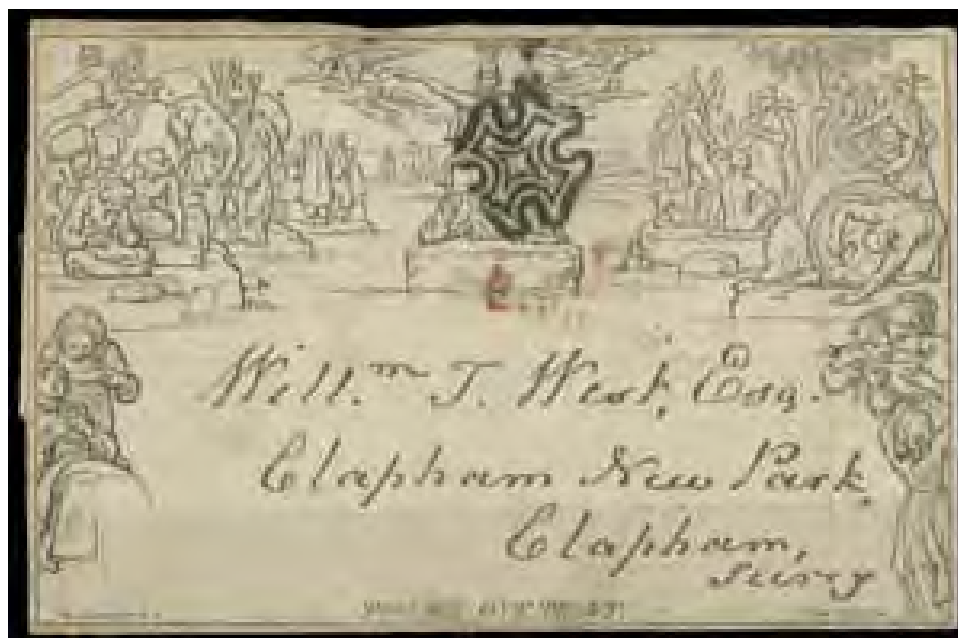 Will.m J. West, Esq.
Clapham New Park,
Clapham,
Surry